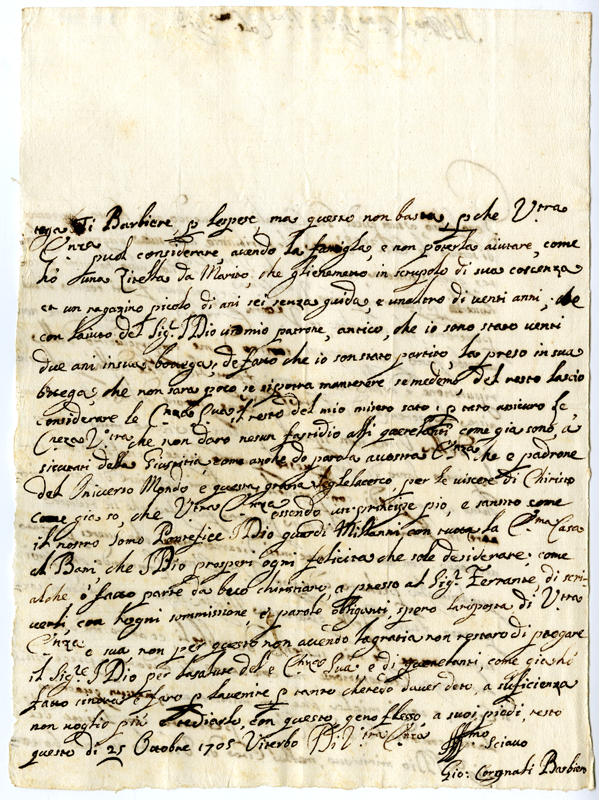 Barbiere, p le spese, ma questo non basta, p che V.tra
Cnza puol considerare avendo la famiglia, e non poterla aiutare, come
ho una Zitella da Marito, che gliene in scrupolo di sua coscenza
et un ragazino picolo di ani sei senza guida, e un altro di venti anni, che
con laiuto del Sig.r IDio un mio patrone, antico, che io sono stato venti
due ani in sua botega, de fatto che io son stato partito, la preso in sua
botega, che non sara poco se si potra mantenere se medemo, del resto lascio
considerare le il resto del mio misero stato, p tato asicuro le
Cnza V.tra che non daro nesun fastidio alli querelanti come gia sono, a
sicurati dela Giustitia come anche do parola a vostra Cnza che e padrone
del Universo Mondo e questa gratia gle la cerco, per le viscere di Christo
come gia so, che V.tra Cnza essendo un principe pio, e santto come
il nostro Somo Pontefice IDio guardi Millanni con tutta la Casa
Al Bani che IDio prosperi ogni felicita che sole desiderare, come
alche o fatto parte da beco christiano, a presto al Sig.r Ferrante, di scri-
verli con hogni sommissione, et parole obliganti spero la risposta di V.tra
Cnza e sua non per questo non avendo la gratia non restaro di pregare
il Sig.re IDio per la salute del e Cnza Sua e di querelanti, come gia ho
fatto sinora e faro p lavenire p tanto chetedo daver deto, a suficienza
non voglio piu tediarla, con questo, genoflesso, a suoi piedi, resto
questo di 25 Octobre 1705 Viterbo Di V.tra Cnza
Sciavo
Gio: Corgnati Barbiere